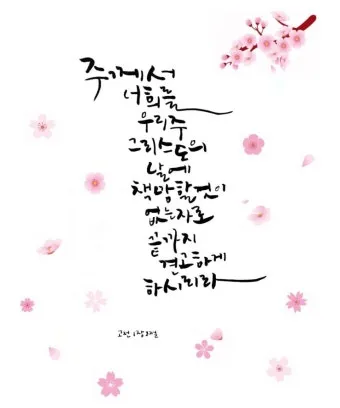 주께서
너희를
우리주
그리스도의
날에
책망할것이
없는자로
끝까지
견고하게
하시리라
고전 1장8절